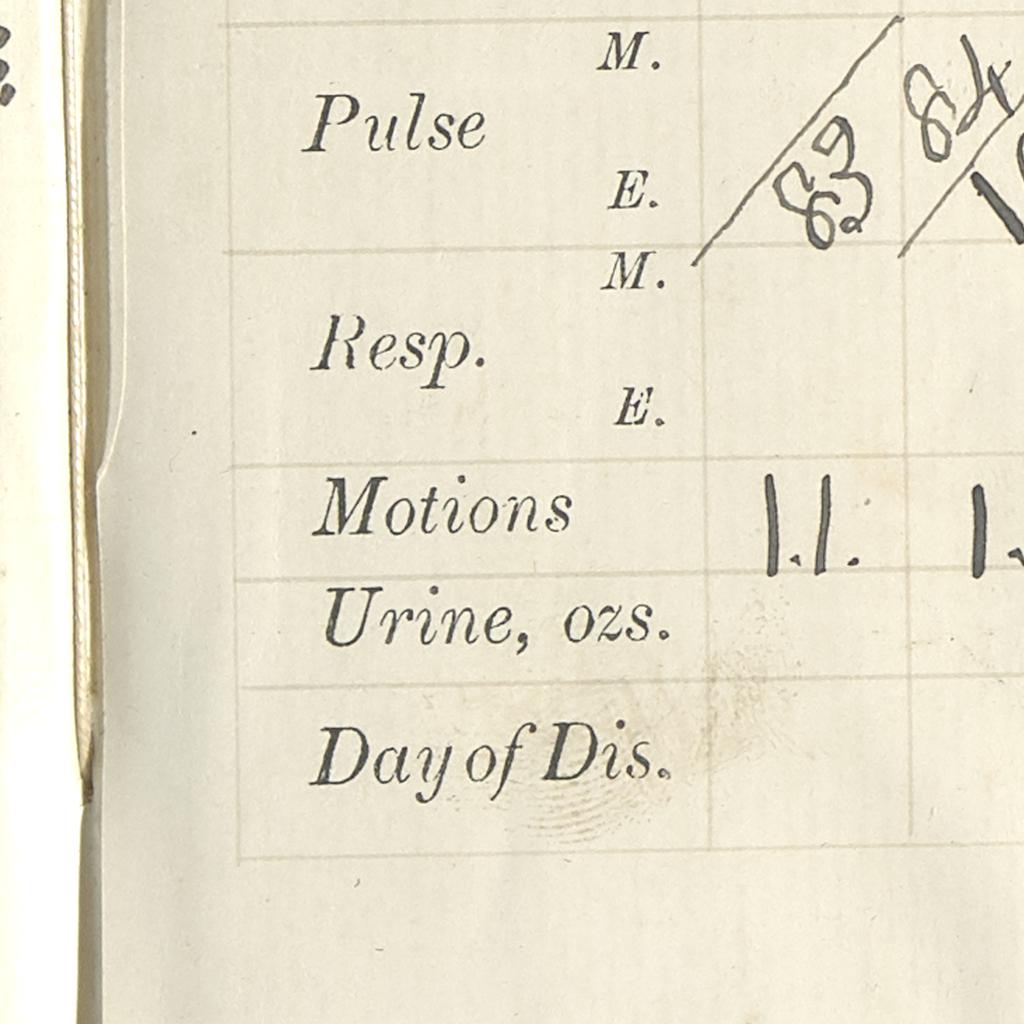 M.
Pulse
E.
83
84
M.
Resp.
E.
Motions 1.1. 1.
Urine, ozs.
Day of Dis.